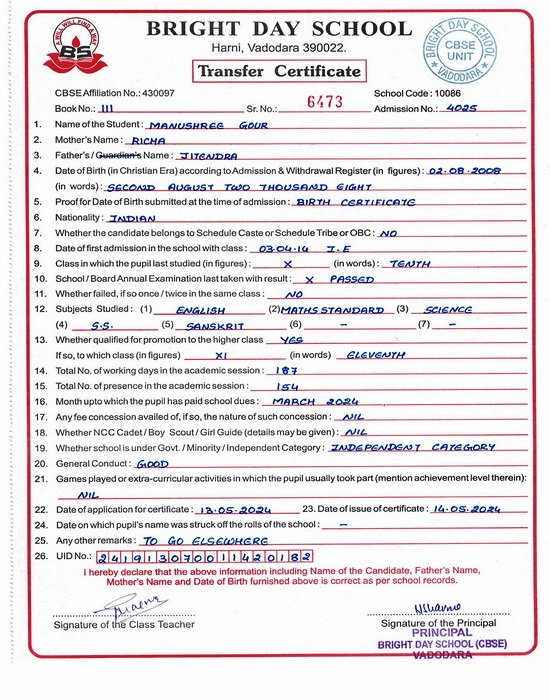 BRIGHT DAY SCHOOL
Harni, Vadodara 390022.
Transfer Certificate
BRIGHT DAY SCHOOL
CBSE
UNIT
VADODARA
BS
CBSE Affiliation No.: 430097 School Code : 10086
Book No.: III Sr. No.: 6473 Admission No.: 4025
1. Name of the Student : MANUSHREE GOUR
2. Mother's Name : RICHA
3. Father's / Guardian's Name : JITENDRA
4. Date of Birth (in Christian Era) according to Admission & Withdrawal Register (in figures) : 02.08.2008
(in words) : SECOND AUGUST TWO THOUSAND EIGHT
5. Proof for Date of Birth submitted at the time of admission : BIRTH CERTIFICATE
6. Nationality : INDIAN
7. Whether the candidate belongs to Schedule Caste or Schedule Tribe or OBC : NO
8. Date of first admission in the school with class : 03.04.14 I-E
9. Class in which the pupil last studied (in figures) : X (in words) : TENTH
10. School / Board Annual Examination last taken with result : X PASSED
11. Whether failed, if so once / twice in the same class : NO
12. Subjects Studied : (1) ENGLISH (2) MATHS STANDARD (3) SCIENCE
(4) S.S. (5) SANSKRIT (6) – (7) –
13. Whether qualified for promotion to the higher class YES
If so, to which class (in figures) XI (in words) ELEVENTH
14. Total No. of working days in the academic session : 187
15. Total No. of presence in the academic session : 154
16. Month upto which the pupil has paid school dues : MARCH 2024
17. Any fee concession availed of, if so, the nature of such concession : NIL
18. Whether NCC Cadet / Boy Scout / Girl Guide (details may be given) : NIL
19. Whether school is under Govt. / Minority / Independent Category : INDEPENDENT CATEGORY
20. General Conduct : GOOD
21. Games played or extra-curricular activities in which the pupil usually took part (mention achievement level therein):
NIL
22. Date of application for certificate : 13.05.2024 23. Date of issue of certificate : 14.05.2024
24. Date on which pupil's name was struck off the rolls of the school : –
25. Any other remarks : TO GO ELSEWHERE
26. UID No.: 241913070011420182
I hereby declare that the above information including Name of the Candidate, Father's Name,
Mother's Name and Date of Birth furnished above is correct as per school records.
Signature of the Class Teacher Signature of the Principal
PRINCIPAL
BRIGHT DAY SCHOOL (CBSE)
VADODARA